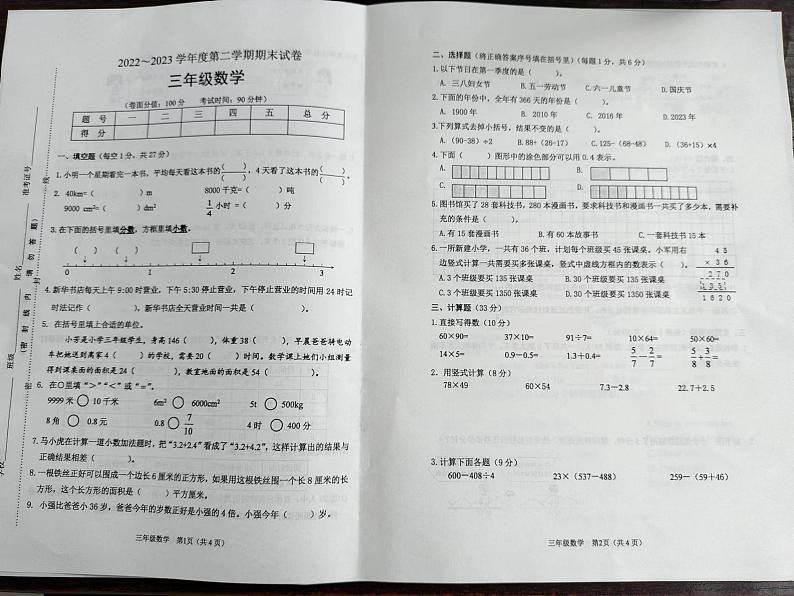 2022～2023 学年度第二学期期末试卷
三年级数学
（卷面分值：100 分　考试时间：90 分钟）
题 号 一 二 三 四 五 总 分
得 分
一、填空题（每空 1 分，共 27 分）
1. 小明一个星期看完一本书，平均每天看这本书的( )/( )，4 天看了这本书的( )/( )。
2. 40km=（ ）m 8000 千克=（ ）吨
9000 cm²=（ ）dm² 1/4 小时 =（ ）分
3. 在下面的括号里填分数，方框里填小数。
（ ）（ ）
0 1 2 3
4. 新华书店每天上午 9:00 时营业，下午 5:30 停止营业，下午停止营业的时间用 24 时记
时法记作（ ），新华书店全天营业时间一共是（ ）。
5. 在括号里填上合适的单位。
小芳是小学三年级学生，身高 146（ ），体重 38（ ），早晨爸爸骑电动
车把她送到离家 4（ ）的学校，需要 20（ ）时间。数学课上她们小组测量
得到课桌面的面积是 24（ ），教室地面的面积是 54（ ）。
6. 在○里填“＞”“＜” 或 “＝”。
9999 米 ○ 10 千米 6m² ○ 6000cm² 5t ○ 500kg
8 角 ○ 0.8 元 0.8 ○ 7/10 4 时 ○ 400 分
7. 马小虎在计算一道小数加法题时，把“3.2+2.4”看成了“3.2+4.2”，这样计算出的结果与
正确结果相差（ ）。
8. 一根铁丝正好可以围成一个边长 6 厘米的正方形，如果用这根铁丝围一个长 8 厘米的长
方形，这个长方形的面积是（ ）平方厘米。
9. 小强比爸爸小 36 岁，爸爸今年的岁数正好是小强的 4 倍。小强今年（ ）岁。
三年级数学 第1页（共 4 页）
准考证号
姓名
班级
学校
（密 封 线 内 请 勿 答 题）
密
封
线
二、选择题（将正确答案序号填在括号里）（每题 1 分，共 6 分）
1. 以下节日在第一季度的是（ ）。
A. 三八妇女节 B. 五一劳动节 C.六一儿童节 D.国庆节
2. 下面的年份中，全年有 366 天的年份是（ ）。
A. 1900 年 B. 2010 年 C. 2016 年 D.2023 年
3.下列算式去掉小括号，结果不变的是（ ）。
A.（90-38）÷2 B. 88+（26-17） C.125-（68-48） D.（36+15）×4
4.下面（ ）图形中的涂色部分可以用 0.4 表示。
A. B.
C. D.
5.图书馆买了 28 套科技书，280 本漫画书，要求科技书和漫画书一共买了多少本，需要补
充的条件是（ ）。
A.有 15 套漫画书 B.有 60 本故事书 C.一套科技书 15 本
6.一所新建小学，一共有 36 个班，计划每个班级买 45 张课桌。小军用右
边竖式计算一共需要买多张课桌，竖式中虚线框内的数表示（ ）。
A.3 个班级要买 135 张课桌 B.30 个班级要买 135 张课桌
C.3 个班级要买 1350 张课桌 D.30 个班级要买 1350 张课桌
4 5
× 3 6
2 7 0
1 3 5
1 6 2 0
三、计算题（33 分）
1. 直接写得数（10 分）
60×90= 37×10= 91÷7= 10×64= 50×60=
14×5= 0.9-0.5= 1.3+0.4= 5/7-2/7= 5/8+3/8=
2. 用竖式计算（8 分）
78×49 60×54 7.3-2.8 22.7+2.5
3. 计算下面各题（9 分）
600-408÷4 23×（537-488） 259-（59+46）
三年级数学 第2页（共 4 页）